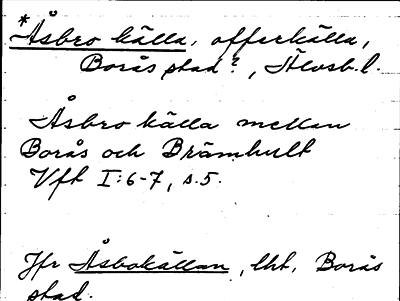 *Åsbro källa, offerkälla,
Borås stad?, Älvsb. l.
Åsbro källa mellan
Borås och Brämhult
Vft I:6-7, s. 5.
Jfr Åsbokällan, lht, Borås
stad.